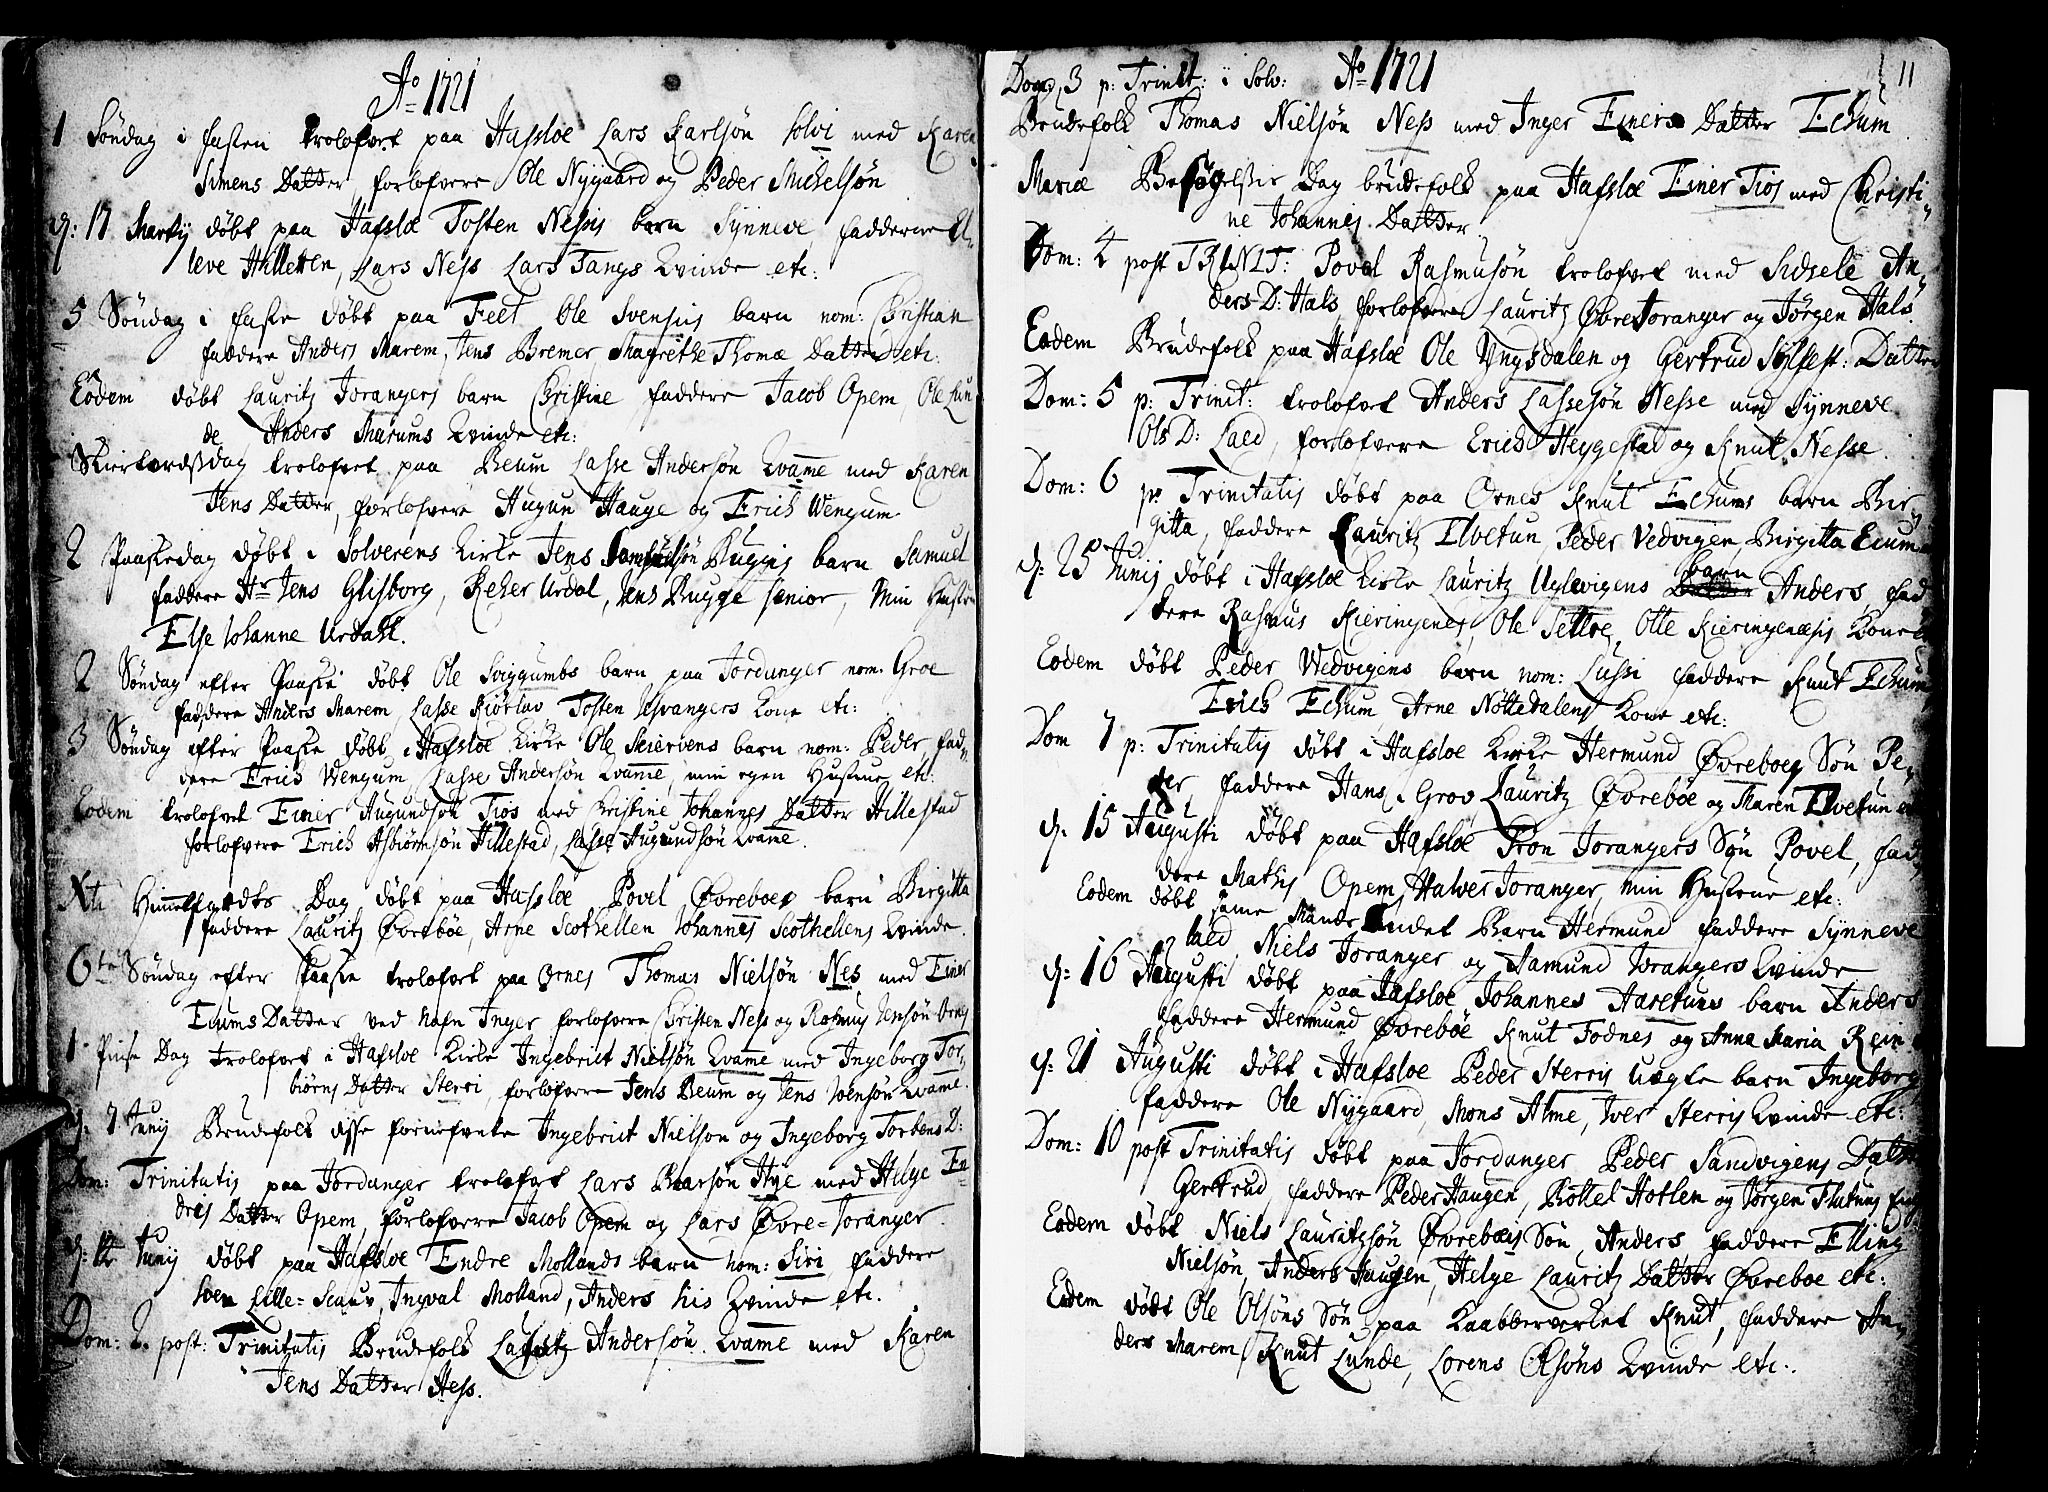 Ao 1721
1 Söndag i fasten trolofvet paa Hafsloe Lars Karlsön Solvi med Karen
Simens Datter, forlofvere Ole Nygaard og Peder Michelsön
d: 17 Martij döbt paa Hafsloe Tosten Nessis barn Synneve, faddere El,
leve Hilletten, Lars Ness Lars Tangs Kvinde etc:
5 Söndag i faste döbt paa Feet Ole Svensiis barn nom: Christian
faddere Anders Marem, Jens Bremer, Magrethe Thomæ Datter etc:
Eodem döbt Lauritz Jorangers barn Christine faddere Jacob Opem Ole Lun
de, Anders Marums Kvinde etc:
Skiertorsdag trolofvet paa Beum Lasse Andersön Kvame med Karen
Jens Datter, forlofvere Augun Hauge og Erich Wengum
2 Paaskedag döbt i Solverens Kirke Jens Samuelsön Bugges barn Samuel
faddere Hr Jens Glisborg, Urdal, Jens Bugge senior, Min Hustru
Else Johanne Urdahl.
2 Söndag efter Paaske döbt Ole Sviggumbs barn paa Jordanger nom: Groe
faddere Anders Marem, Lasse Kiörlav Tosten Usvangers Kone etc:
3 Söndag efter Paaske döbt i Hafsloe Kirke Ole Skiervens barn nom: Peder, fad,,
dere Erich Wengum, Lasse Andersön Kvame, min egen Hustrue etc:
Eodem trolofvet Einer Augundsön Tios med Christine Johannes Datter Hillestad
forlofvere Erich Asbiörnsön Hillestad, Lasse Augundsön Kvame.
Xti Himmelfardts Dag döbt paa Hafsloe Povel Övreboes barn Birgitta
faddere Lauritz Övreböe, Arne Scothellen Johannes Scothellens Kvinde.
6te Söndag efter Paaske trolofvet paa Ornes Thomas Nielsön Nes med Einer
Ecums Datter ved Nafn Inger forlofvere Christen Ness og Rasmus Jensön Ornes
1 Pinse Dag trolofvet i Hafsloe Kirke Ingebrict Nielsön Kvame med Ingeborg Tor,,
biörns Datter Sterri, forlofvere Jens Beum og Jens Joensön Kvame.
d: 7 Junij Brudefolk disse fornefnte Ingebrict Nielson og Ingeborg Torbens D:
Dom: Trinitatis paa Jordanger trolofvet Lars Baarsön Hye med Helge En
dres Datter Opem, forlofvere Jacob Opem og Lars Övre=Joranger.
d: 12 Junij döbt paa Hafsloe Endre Mollands barn nom: Siri, faddere
Soen Lille=Scauv, Ingval Molland, Anders his Kvinde etc.
Dom: 2. post: Trinitatis Brudefolk Lauritz Andersön Kvame med Karen
Jens Datter Hess.
11
Dom 3 p: Trinit: i Solv: Ao 1721
Brudefolk Thomas Nielsön Ness med Inger Einers Datter Echum
Mariæ Besögelsis Dag brudefolk paa Hafsloe Einer Tios med Christi,,
ne Johannes Datter
Dom: 4 post TRINIT: Povel Rasmusön trolofvet med Sidsele An,,
ders D: Hals, forlofvere Lauritz Övre Joranger og Jörgen Hals.
Eodem Brudefolk paa Hafsloe Ole Yngsdalen og Gertrud Sylfest: Datter
Dom: 5 p: Trinit: trolofvet Anders Lassesön Nesse med Synneve
Ols D: Laed, forlofvere Erich Heggestad og Knut Nesse.
Dom: 6 p: Trinitatis döbt paa Ornes Knut Echums barn Bir,,
gitta, faddere Lauritz Elvetun, Peder Vedvigen, Birgitta Ecum
d: 25 Junij döbt i Hafsloe Kirke Lauritz Uglevigens barn Anders, fad
dere Rasmus Kieringenes, Ole Settoe, Olle Kieringenæsis Kone
Eodem döbt Peder Wedvigens barn nom: Lussi faddere Knut Echum
Erich Echum Arne Nöttedalens Kone etc:
Dom 7 p: Trinitatis döbt i Hafsloe Kirke Hermund Övreboes Sön Pe,,
der, faddere Hans i Grov Lauritz Övreböe og Maren Elvetun
d. 15 Augusti döbt paa Hafsloe Tron Jorangers Sön Povel, fad,,
dere Mathis Opem, Halver Joranger, min Hustrue etc:
Eodem döbt same Mands Andet Barn Hermund faddere Synneve
Laed, Niels Joranger og Aamund Jorangers Kvinde
d: 16 Augusti döbt paa Hafsloe Johannes Aaretuns barn Anders
faddere Hermund Övreböe Knut Fodnes og Anna Maria Rein
d: 21 Augusti döbt i Hafsloe Peder Sterris uægte barn Ingeborg
faddere Ole Nygaard, Mons Alme, Iver Sterris Kvinde etc:
Dom: 10 post Trinitatis döbt paa Jordanger Peder Sandvigens Datter
Gertrud, faddere Peder Haugen, Bottel Hotlen og Jörgen
Eodem döbt Niels Lauritzsön Övreböis Sön, Anders, faddere Elling
Nielsön, Anders Haugen, Helge Lauritz Datter Övreboe etc:
Eodem döbt Ole Olsöns Sön paa Kaabberverket Knut, faddere An,,
ders Marem, Knut Lunde, Lorens Olsöns Kvinde etc:.